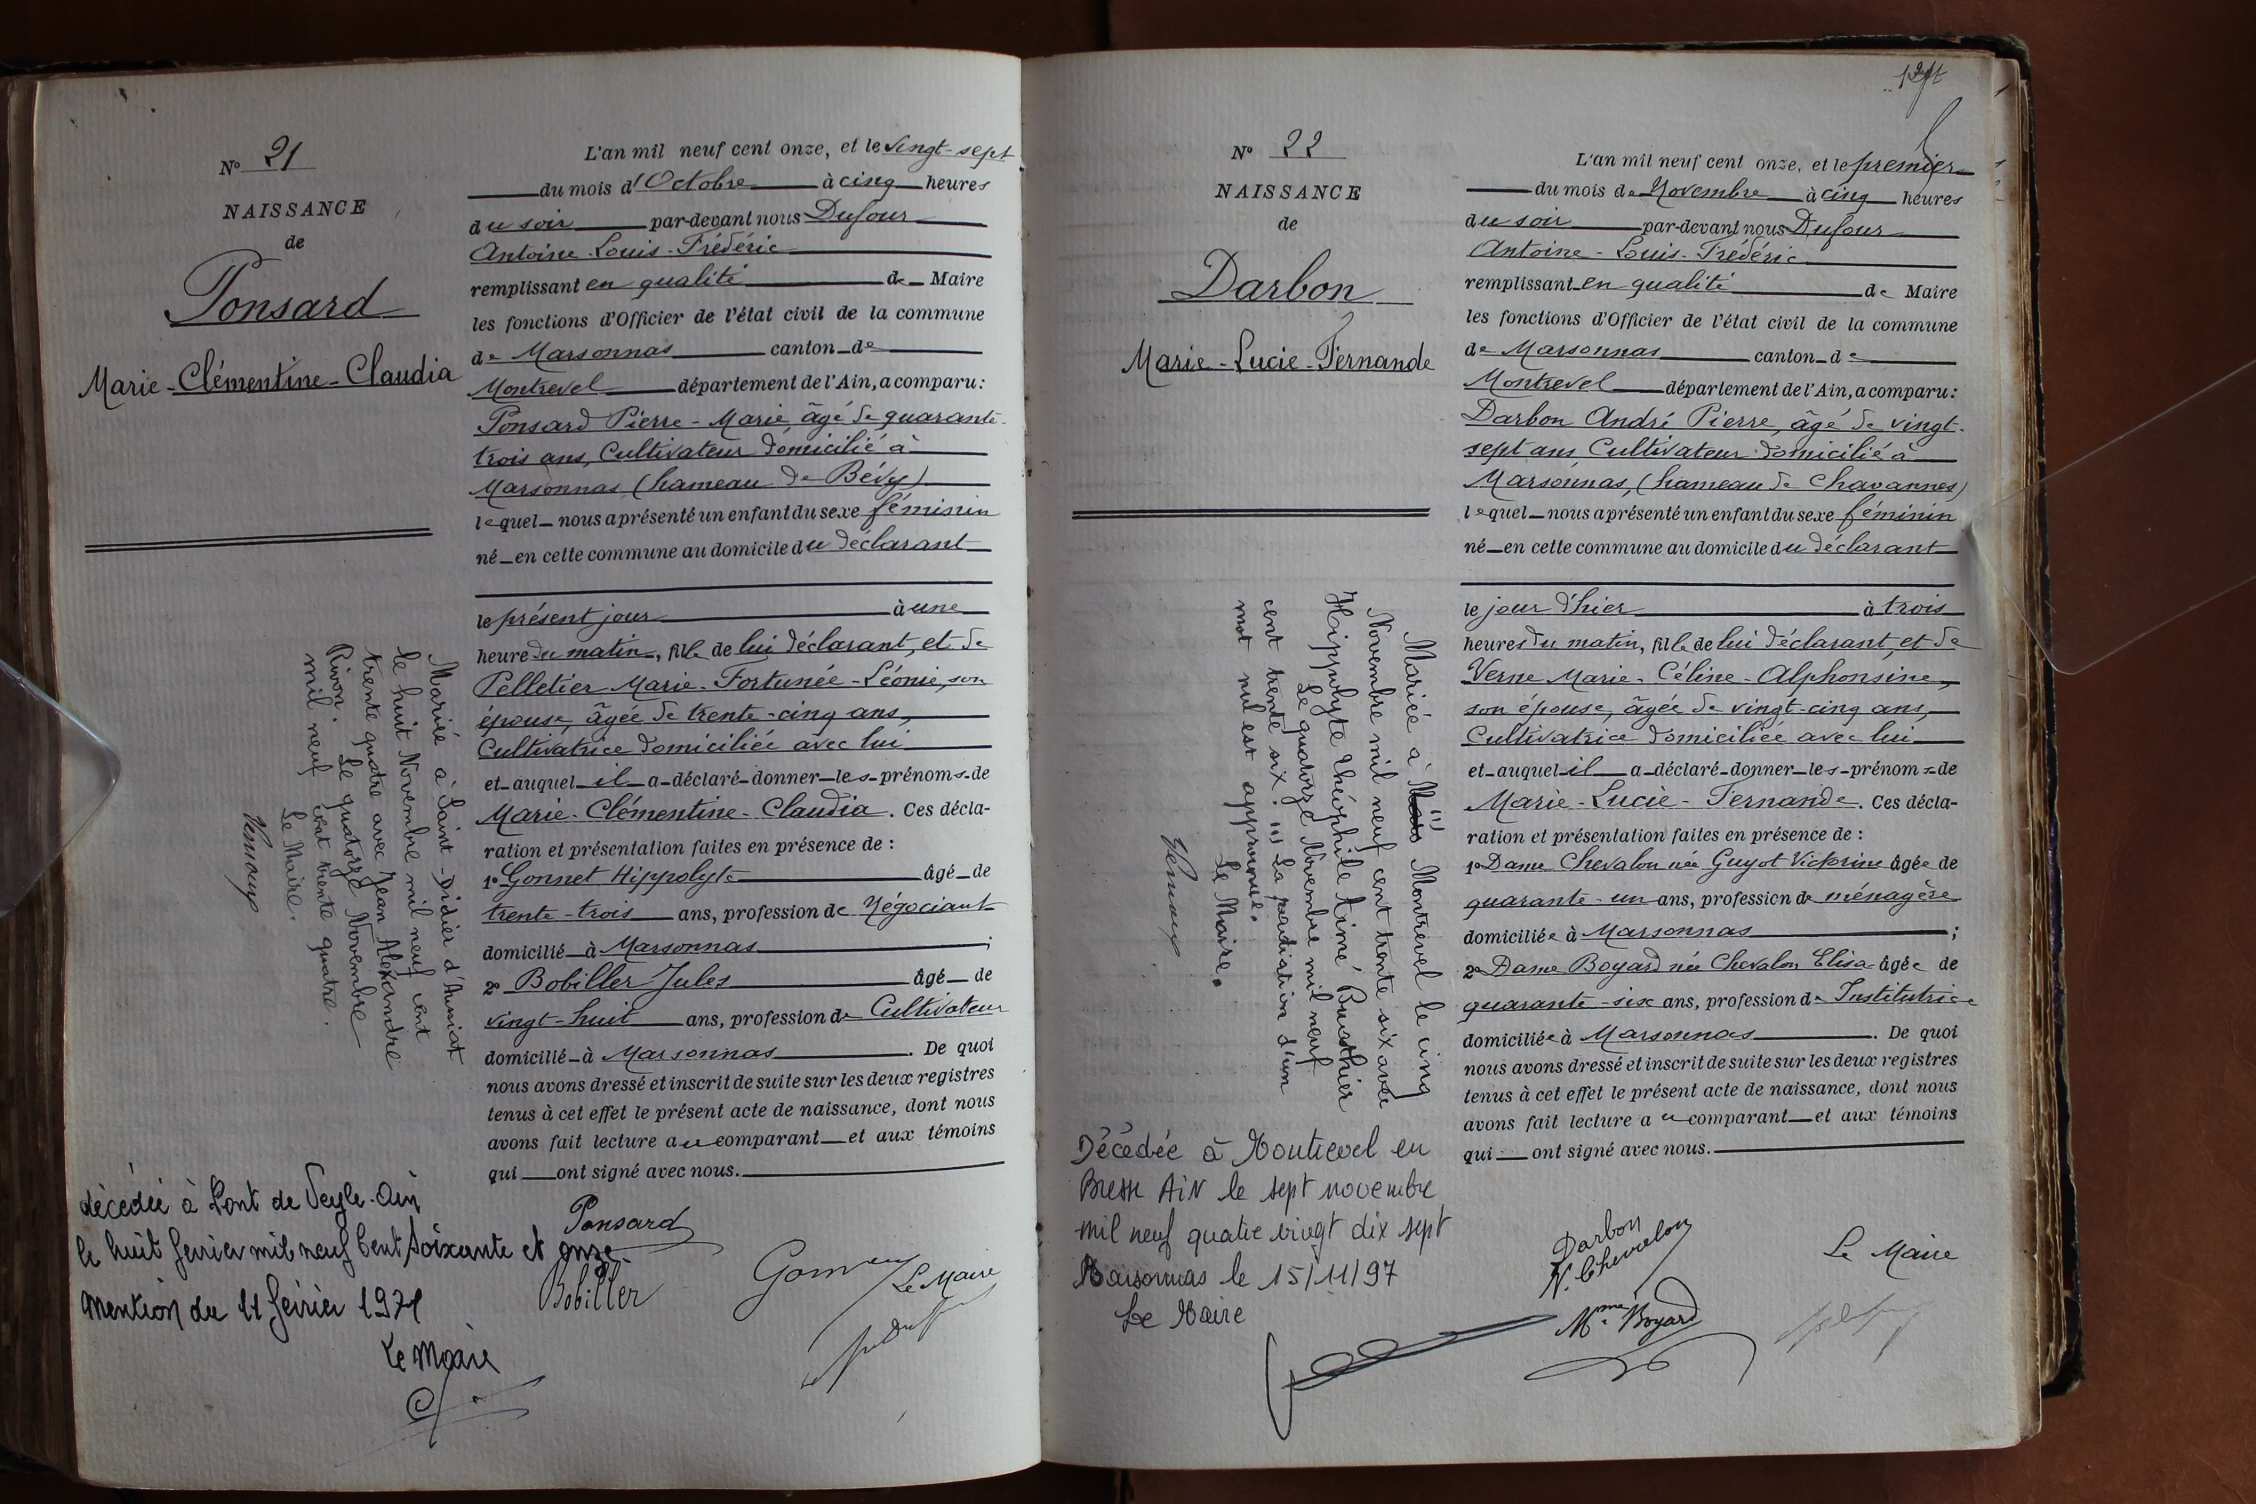 N° 21
NAISSANCE
de
Ponsard
Marie-Clémentine-Claudia
L'an mil neuf cent onze, et le vingt-sept
du mois d'Octobre à cinq heures
du soir par-devant nous Dufour
Antoine-Louis-Frédéric
remplissant en qualité de Maire
les fonctions d'Officier de l'état civil de la commune
de Marsonnas canton de
Montrevel département de l'Ain, a comparu :
Ponsard Pierre-Marie, âgé de quarante-
trois ans, Cultivateur domicilié à
Marsonnas (hameau de Bévy)
lequel nous a présenté un enfant du sexe féminin
né en cette commune au domicile du déclarant
le présent jour à une
heure du matin, fille de lui déclarant, et de
Pelletier Marie-Fortunée-Léonie, son
épouse, âgée de trente-cinq ans,
Cultivatrice domiciliée avec lui
et auquel il a déclaré donner les prénoms de
Marie-Clémentine-Claudia. Ces décla-
ration et présentation faites en présence de :
1° Gonnet Hippolyte âgé de
trente-trois ans, profession de Négociant
domicilié à Marsonnas ;
2° Bobiller Jules âgé de
vingt-huit ans, profession de Cultivateur
domicilié à Marsonnas. De quoi
nous avons dressé et inscrit de suite sur les deux registres
tenus à cet effet le présent acte de naissance, dont nous
avons fait lecture au comparant et aux témoins
qui ont signé avec nous.
Ponsard
Bobiller
Le Maire
Mariée à Saint-Didier d'Aussiat
le huit Novembre mil neuf cent
trente quatre avec Jean Alexandre
Rivon. Le quatorze Novembre
mil neuf cent trente quatre.
Le Maire.
décédée à Pont de Veyle-Ain
le huit février mil neuf cent soixante et onze
Mention du 11 février 1971
Le Maire
N° 22
NAISSANCE
de
Darbon
Marie-Lucie-Fernande
L'an mil neuf cent onze, et le premier
du mois de Novembre à cinq heures
du soir par-devant nous Dufour
Antoine-Louis-Frédéric
remplissant en qualité de Maire
les fonctions d'Officier de l'état civil de la commune
de Marsonnas canton de
Montrevel département de l'Ain, a comparu :
Darbon André Pierre, âgé de vingt-
sept ans Cultivateur domicilié à
Marsonnas, (hameau de Chavannes)
lequel nous a présenté un enfant du sexe féminin
né en cette commune au domicile du déclarant
le jour d'hier à trois
heures du matin, fille de lui déclarant, et de
Verne Marie-Céline-Alphonsine,
son épouse, âgée de vingt-cinq ans,
Cultivatrice domiciliée avec lui
et auquel il a déclaré donner les prénoms de
Marie-Lucie-Fernande. Ces décla-
ration et présentation faites en présence de :
1° Dame Chevalon née Guyot Victorine âgée de
quarante-un ans, profession de ménagère
domiciliée à Marsonnas ;
2° Dame Boyard née Chevalon Elisa âgée de
quarante-six ans, profession de Institutrice
domiciliée à Marsonnas. De quoi
nous avons dressé et inscrit de suite sur les deux registres
tenus à cet effet le présent acte de naissance, dont nous
avons fait lecture au comparant et aux témoins
qui ont signé avec nous.
Darbon
Chevalon
Mme Boyard
Le Maire
Mariée à (1) Montrevel le cinq
Novembre mil neuf cent trente six avec
Hippolyte Théophile Aimé Buathier
Le quatorze Novembre mil neuf
cent trente six. (1) La radiation d'un
mot nul est approuvée.
Le Maire.
Décédée à Montrevel en
Bresse AIN le sept novembre
mil neuf quatre vingt dix sept
Marsonnas le 15/11/97
Le Maire